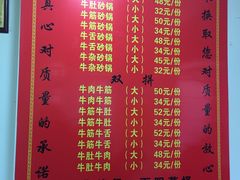 牛肚砂锅（大）48元/份
牛筋砂锅（大）52元/份
牛筋砂锅（小）34元/份
牛舌砂锅（大）52元/份
牛舌砂锅（小）34元/份
牛杂砂锅（小）32元/份
双拼
牛肉牛筋（大）50元/份
牛肉牛筋（小）34元/份
牛筋牛肚（大）52元/份
牛筋牛肚（小）34元/份
牛筋牛舌（大）52元/份
牛筋牛舌（小）34元/份
牛肚牛肉（大）50元/份
牛肚牛肉（小）34元/份
真心对质量的承诺
换取您对质量的放心